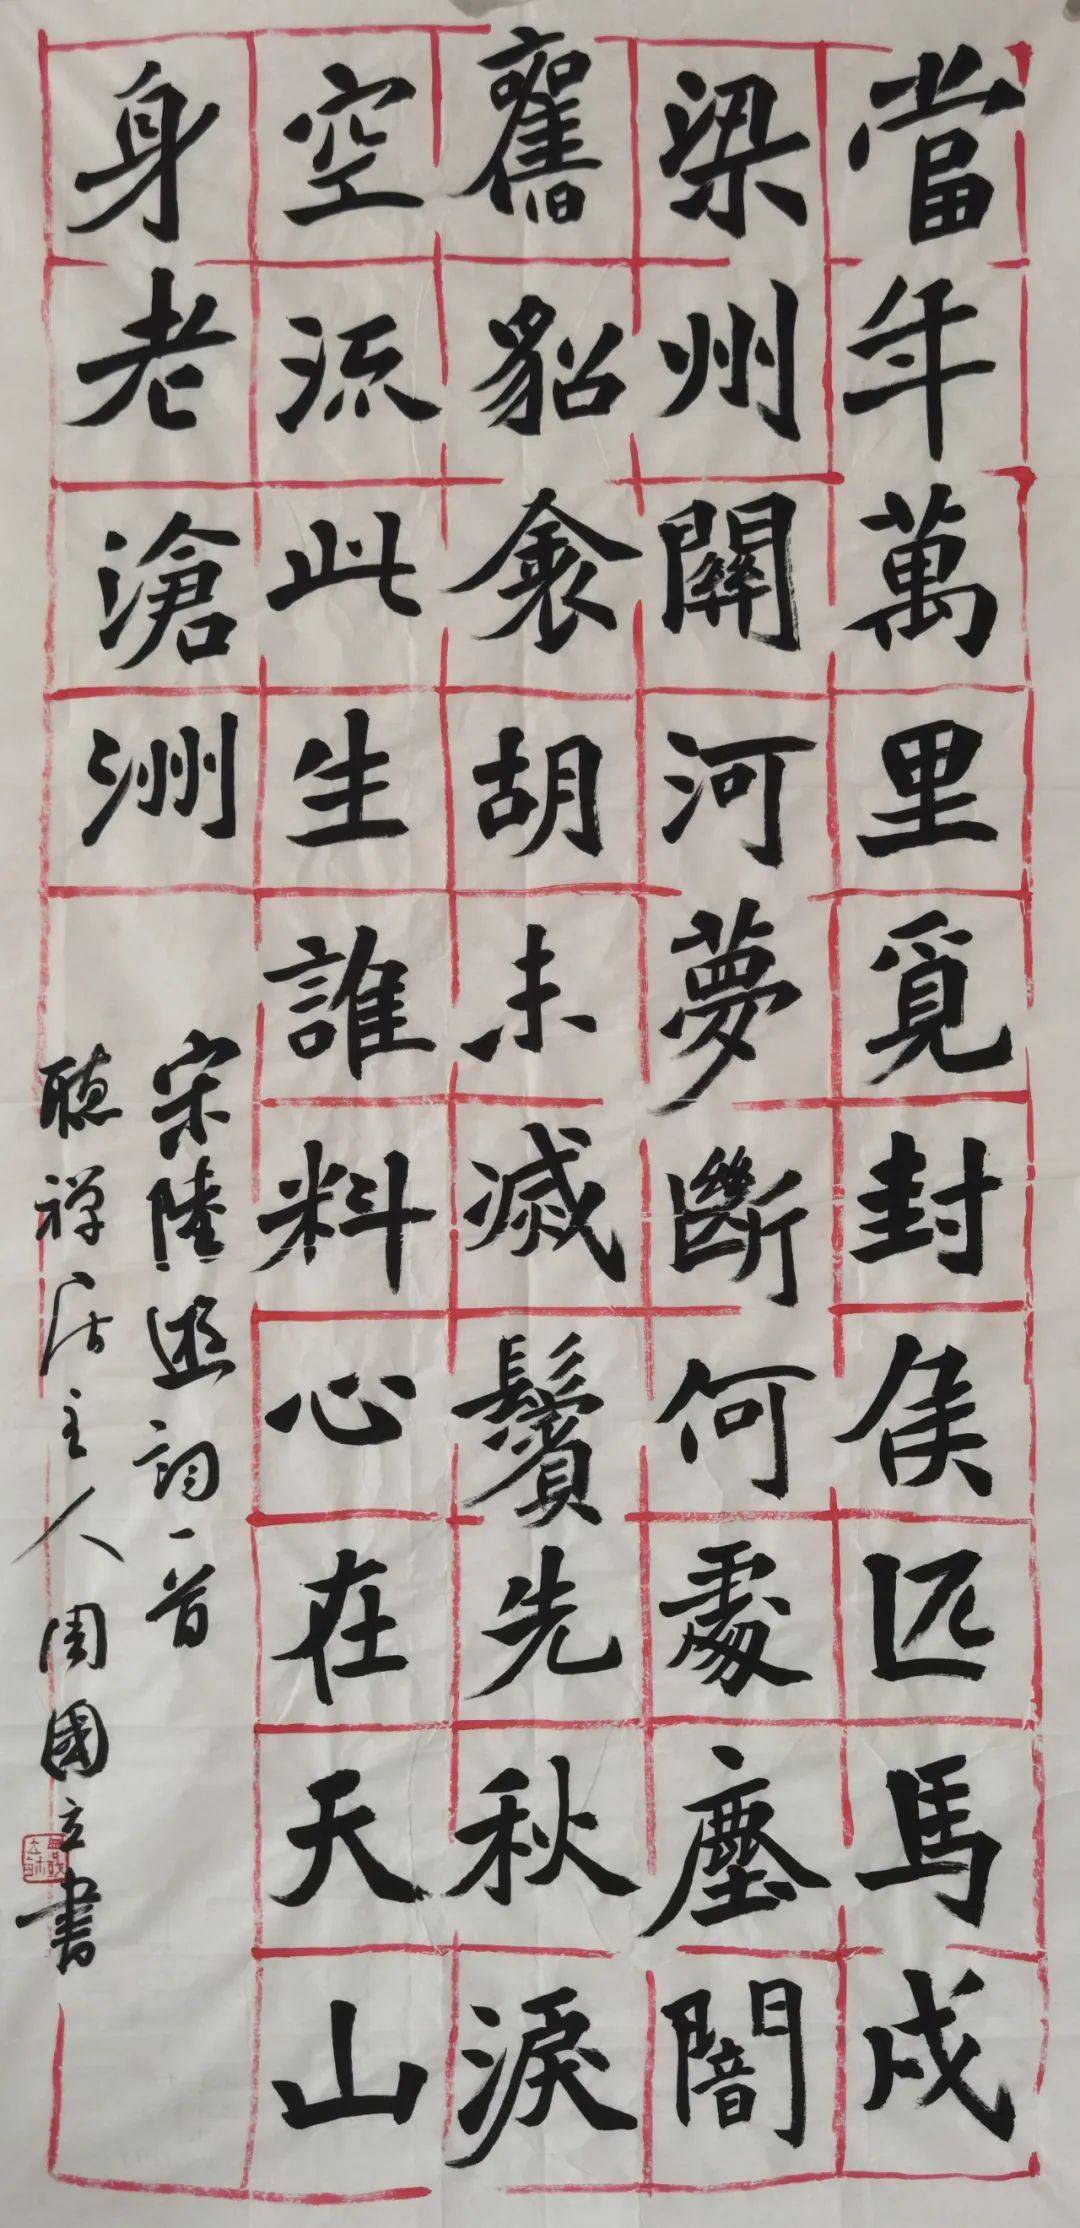 當年萬里覓封侯匹馬戍
梁州關河夢斷何處塵闇
舊貂裘胡未滅鬢先秋淚
空流此生誰料心在天山
身老滄洲
宋陸遊詞一首
聽禪居主人周國立書